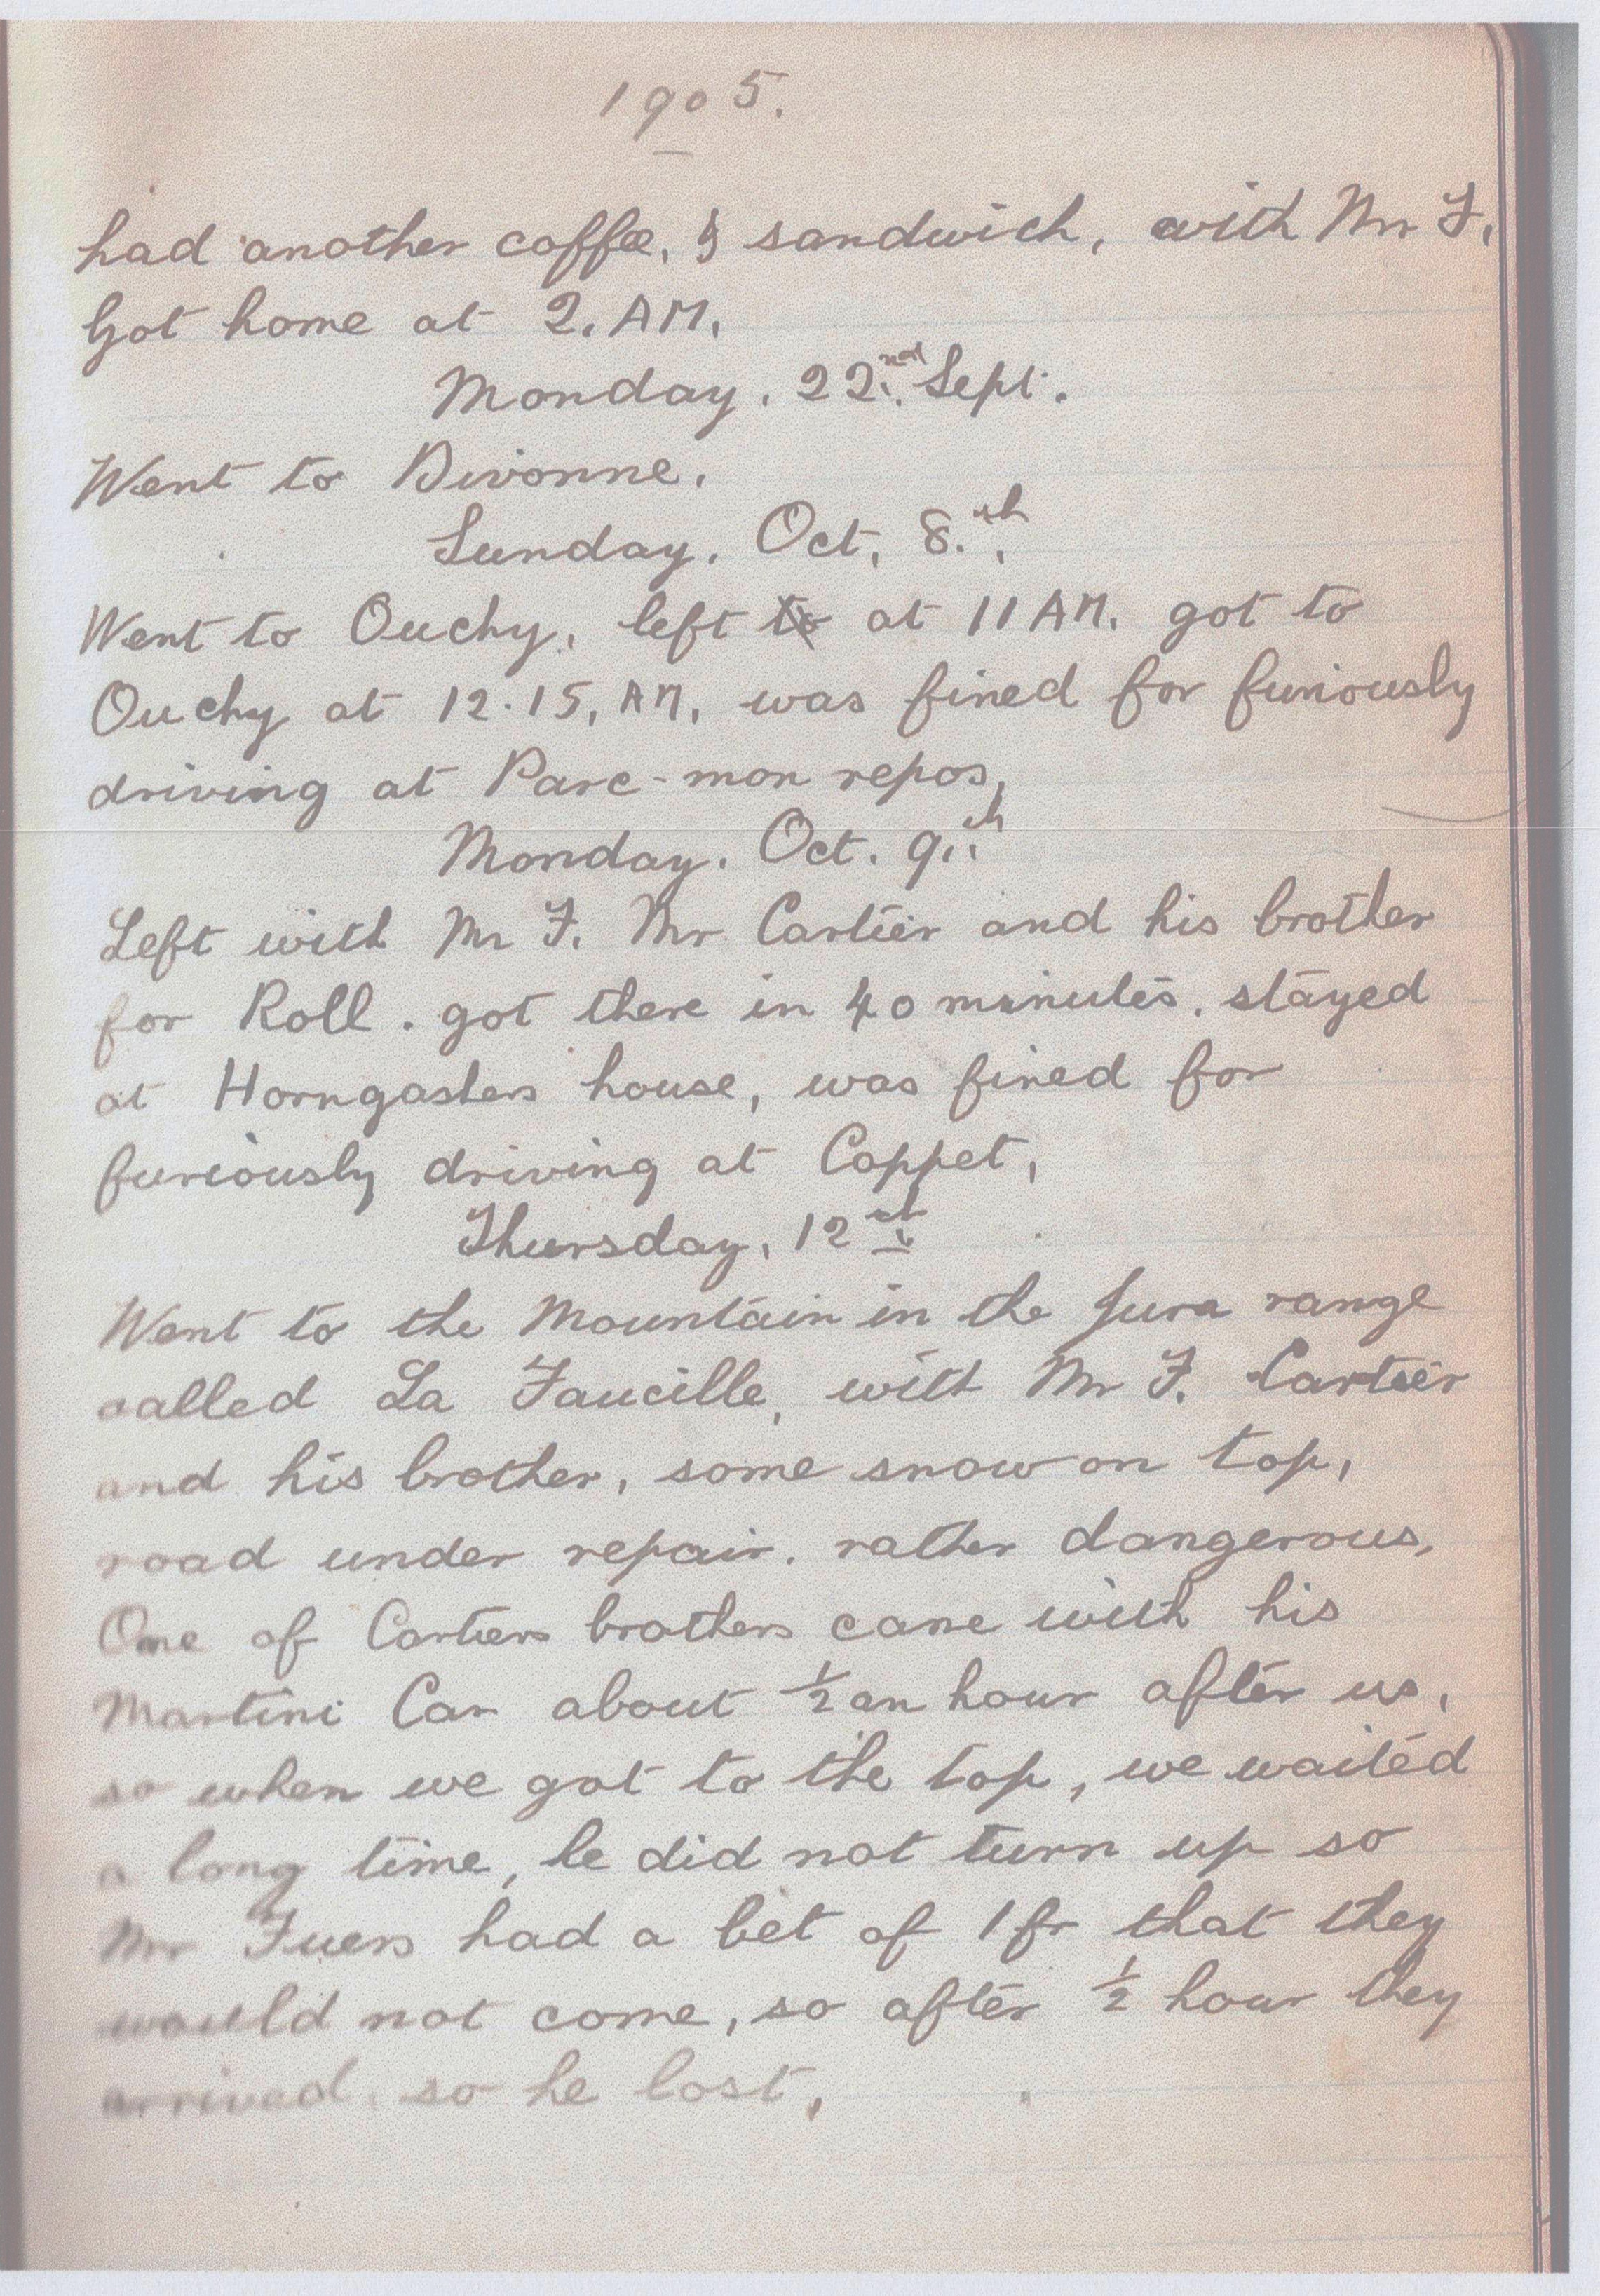 1905.
had another coffee, & sandwich, with Mr F.
Got home at 2. AM.
Monday. 22nd. Sept.
Went to Divonne.
Sunday. Oct. 8.th.
Went to Ouchy, left to at 11 AM. got to
Ouchy at 12.15, AM, was fined for furiously
driving at Parc-mon repos,
Monday. Oct. 9.th
Left with Mr F. Mr Cartier and his brother
for Roll. got there in 40 minutes. stayed
at Horngashers house, was fined for
furiously driving at Coppet,
Thursday, 12
Went to the Mountain in the Jura range
called La Faucille, with Mr F. Cartier
and his brother, some snow on top,
road under repair. rather dangerous,
One of Cartiers brothers cane with his
Martini Car about ½ an hour after us,
so when we got to the top, we waited
a long time, he did not turn up so
Mr Fuers had a bet of 1 fr that they
would not come, so after ½ hour they
arrived. so he lost,